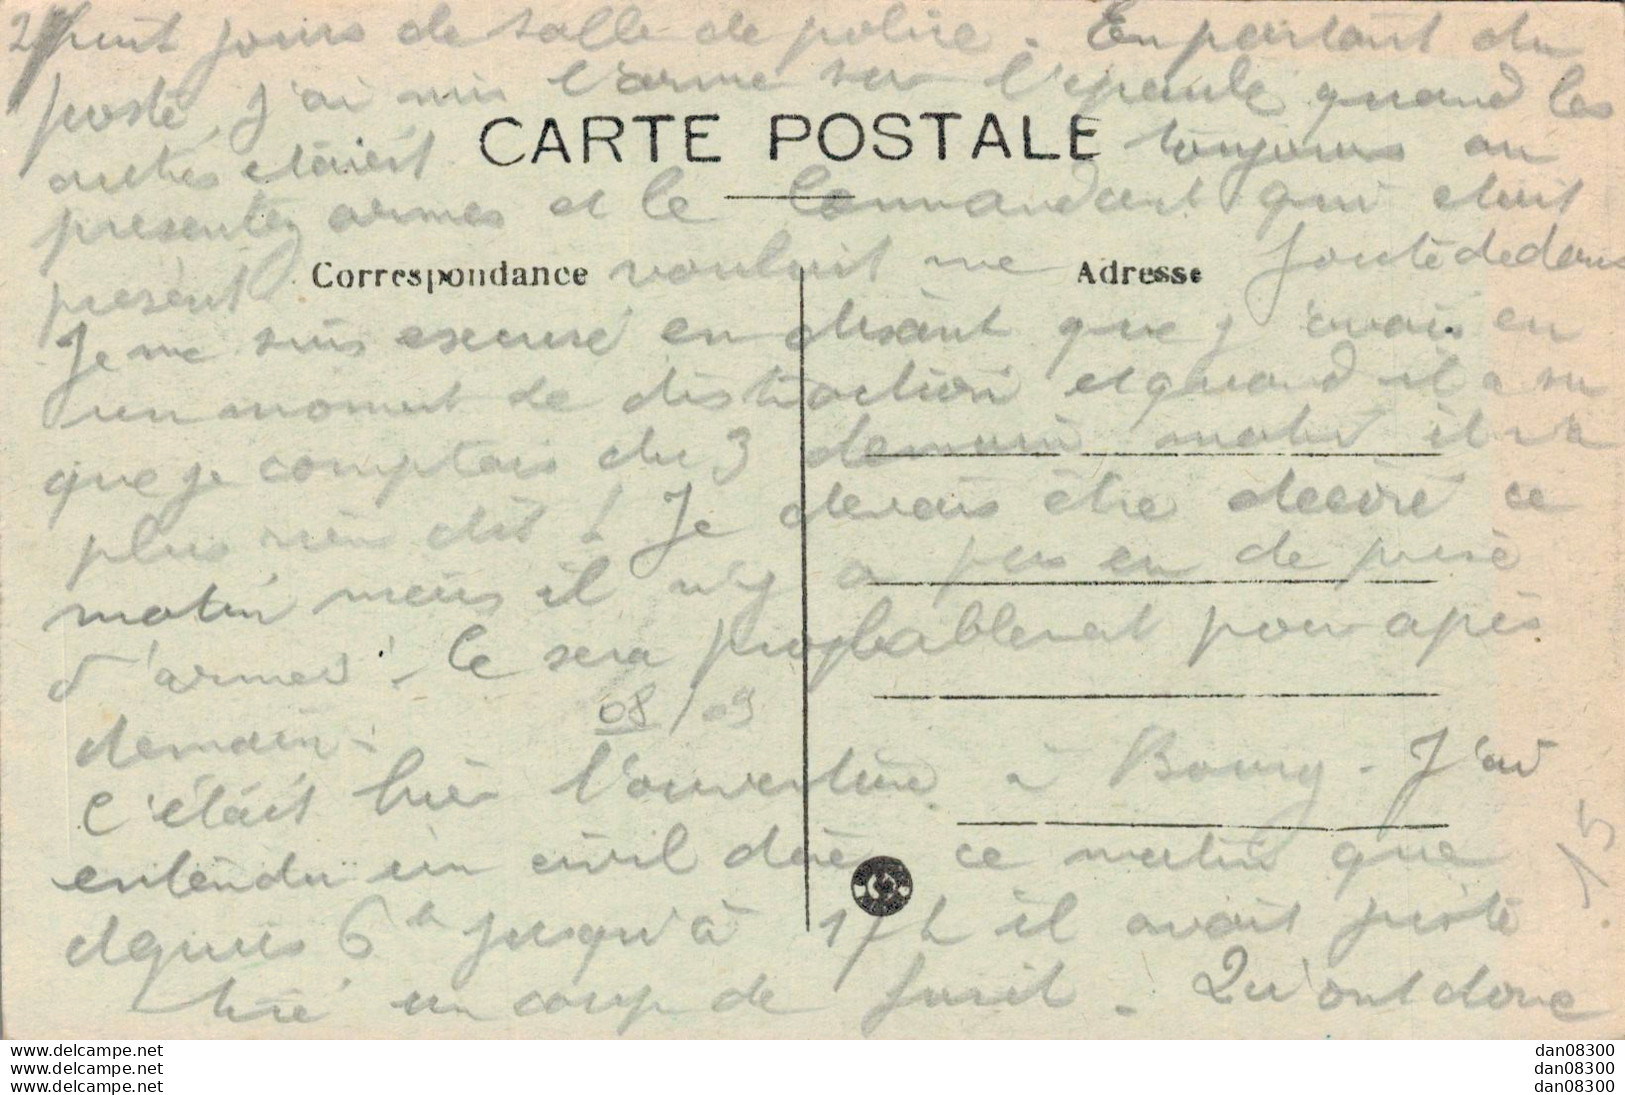 2 huit jours de salle de police. En partant du
poste, j'ai mis l'arme sur l'epaule quand les
autres etaient toujours au
CARTE POSTALE
presentez armes et le Commandant qui etait
présent voulait me foute dedans
Correspondance
Adresse
Je me suis excusé en disant que j'avais eu
un moment de distraction et quand il a su
que je comptais du 3 demain matin il n'a
plus rien dit! Je devais être décoré ce
matin mais il n'y a pas eu de prise
d'armes. Ce sera probablement pour après
demain.
08/09
C'était hier l'ouverture à Bourg. J'ai
entendu un civil dire ce matin que
depuis 6h jusqu'à 17h il avait juste
tiré un coup de fusil. Qu'ont donc
15
www.delcampe.net
www.delcampe.net
www.delcampe.net
dan08300
dan08300
dan08300